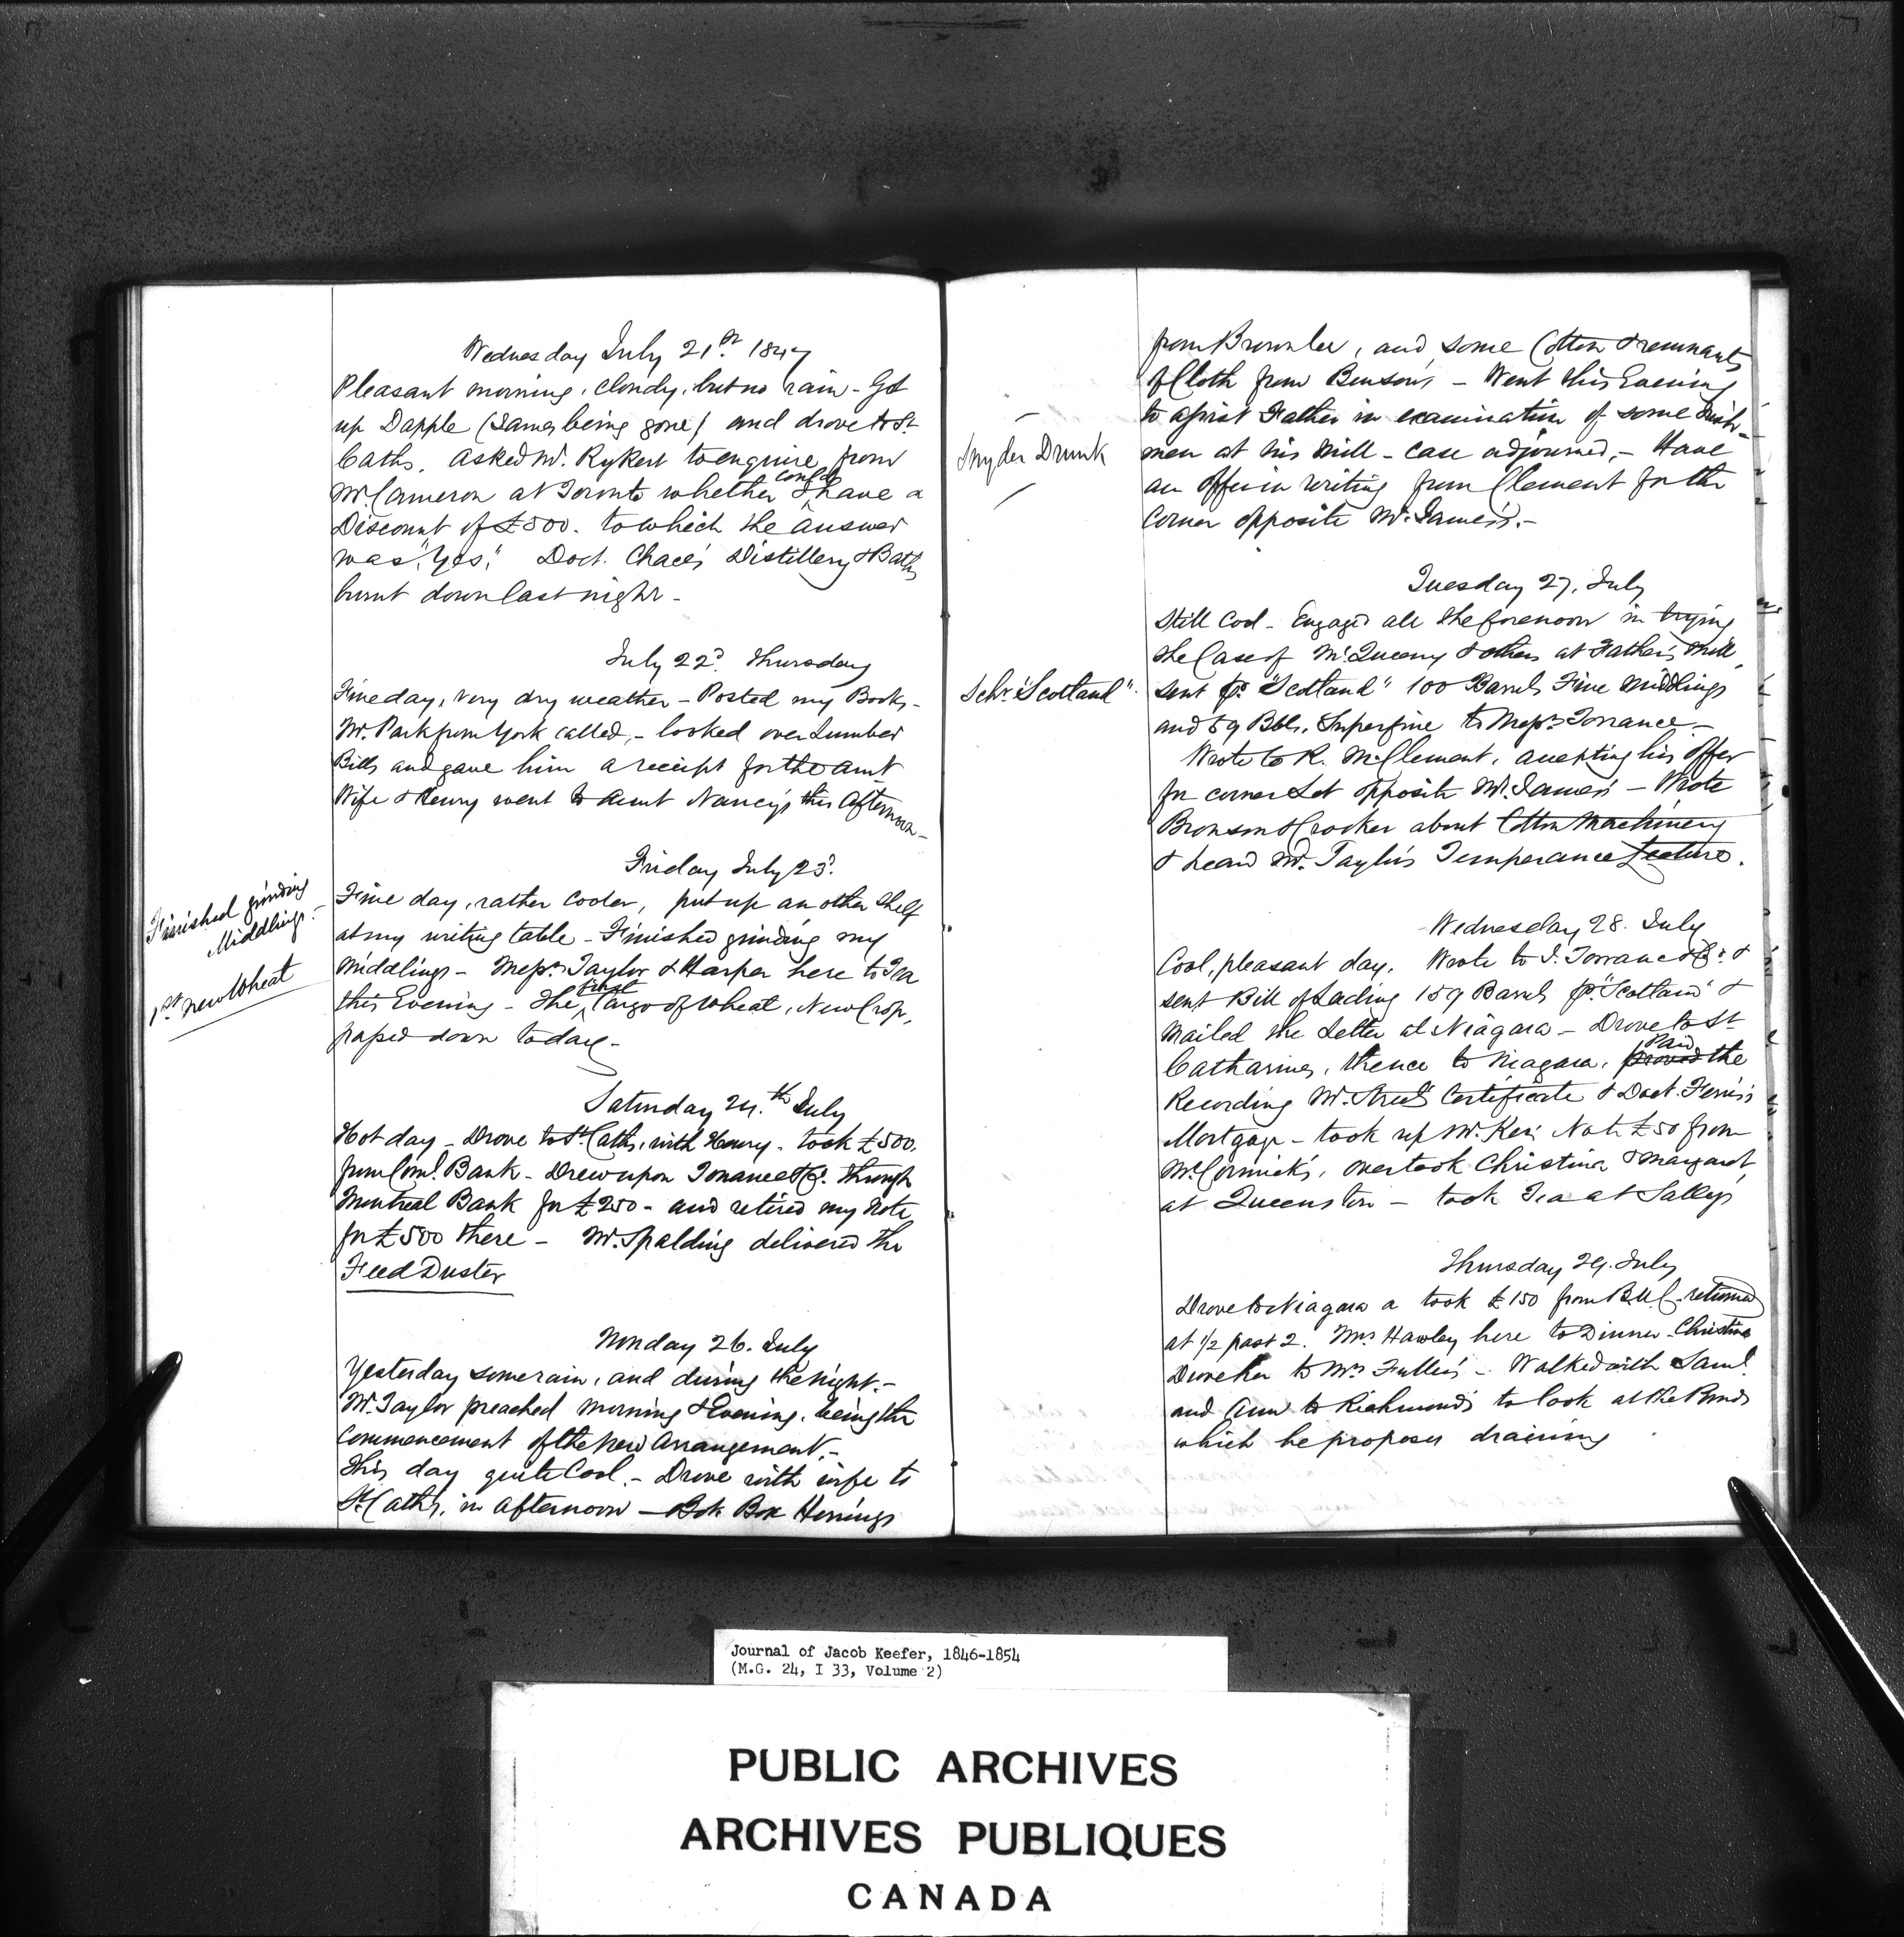 Wednesday July 21st 1847
Pleasant morning, cloudy, but no rain - Got
up Dapple (James being gone) and drove to St
Caths. asked Mr. Rykert to enquire from
Mr Cameron at Toronto whether I could have a
Discount of £500. to which the answer
was "Yes," Doct. Chace's Distillery & Baths
burnt down last night -
July 22d. Thursday
Fine day, very dry weather - Posted my Books -
Mr. Park from York called, - looked over Lumber
Bills and gave him a receipt for the amt
Wife & Henry went to Aunt Nancy's this afternoon -
Friday July 23d.
Finished grinding
Middlings -
1st new Wheat
Fine day, rather cooler, put up an other shelf
at my writing table - Finished grinding my
middlings - Messrs Taylor & Harper here to Tea
this Evening - The first Cargo of Wheat, New Crop,
passed down today -
Saturday 24th July
Hot day - Drove to St Caths, with Henry - took £500.
from Coml. Bank - Drew upon Torrance & Co. through
Montreal Bank for £250 - and retired my Note
for £500 there - Mr. Spalding delivered the
Feed Duster
Monday 26. July
Yesterday some rain, and during the night. -
Mr. Taylor preached morning & Evening, being the
Commencement of the new arrangement, -
This day quite Cool - Drove with wife to
St Caths. in afternoon - Bot Box Herrings
from Brownlee, and some Cotton & remnants
of Cloth from Benson's - Went this Evening
to assist Father in examination of some Irish-
Snyder Drunk
men at his Mill - case adjourned, - Have
an offer in writing from Clement for the
Corner opposite Mr. James's. -
Tuesday 27. July
Still Cool - Engaged all the forenoon in trying
the Case of McQueeny & others at Father's Mill
Schr. "Scotland".
sent pr "Scotland" 100 Barrels Fine Middlings
and 59 Bbls. Superfine to Messrs Torrance -
Wrote to R. McClement, accepting his offer
for corner Lot opposite Mr. James's - Wrote
Bronson & Crocker about Cotton Machinery
& heard Mr. Taylor's Temperance Lecture.
Wednesday 28. July
Cool, pleasant day. Wrote to J. Torrance & Co. &
sent Bill of Lading 159 Barrels pr. "Scotland" &
mailed the Letter at Niagara - Drove to St
Catharines, thence to Niagara, proved Paid the
Recording Mr. Street's Certificate & Doct. Ferris's
Mortgage - took up Mr. Ker's Note £50 from
McCormick's, overtook Christina & Margaret
at Queenston - took Tea at Sally's
Thursday 29. July
Drove to Niagara a took £150 from B.U.C. - returned
at 1/2 past 2. Mrs Hawley here to Dinner - Christina
Drove her to Mrs Fuller's - Walked with Saml.
and Ann to Richmond's to look at the Ponds
which he proposes draining
Journal of Jacob Keefer, 1846-1854
(M.G. 24, I 33, Volume 2)
PUBLIC ARCHIVES
ARCHIVES PUBLIQUES
CANADA